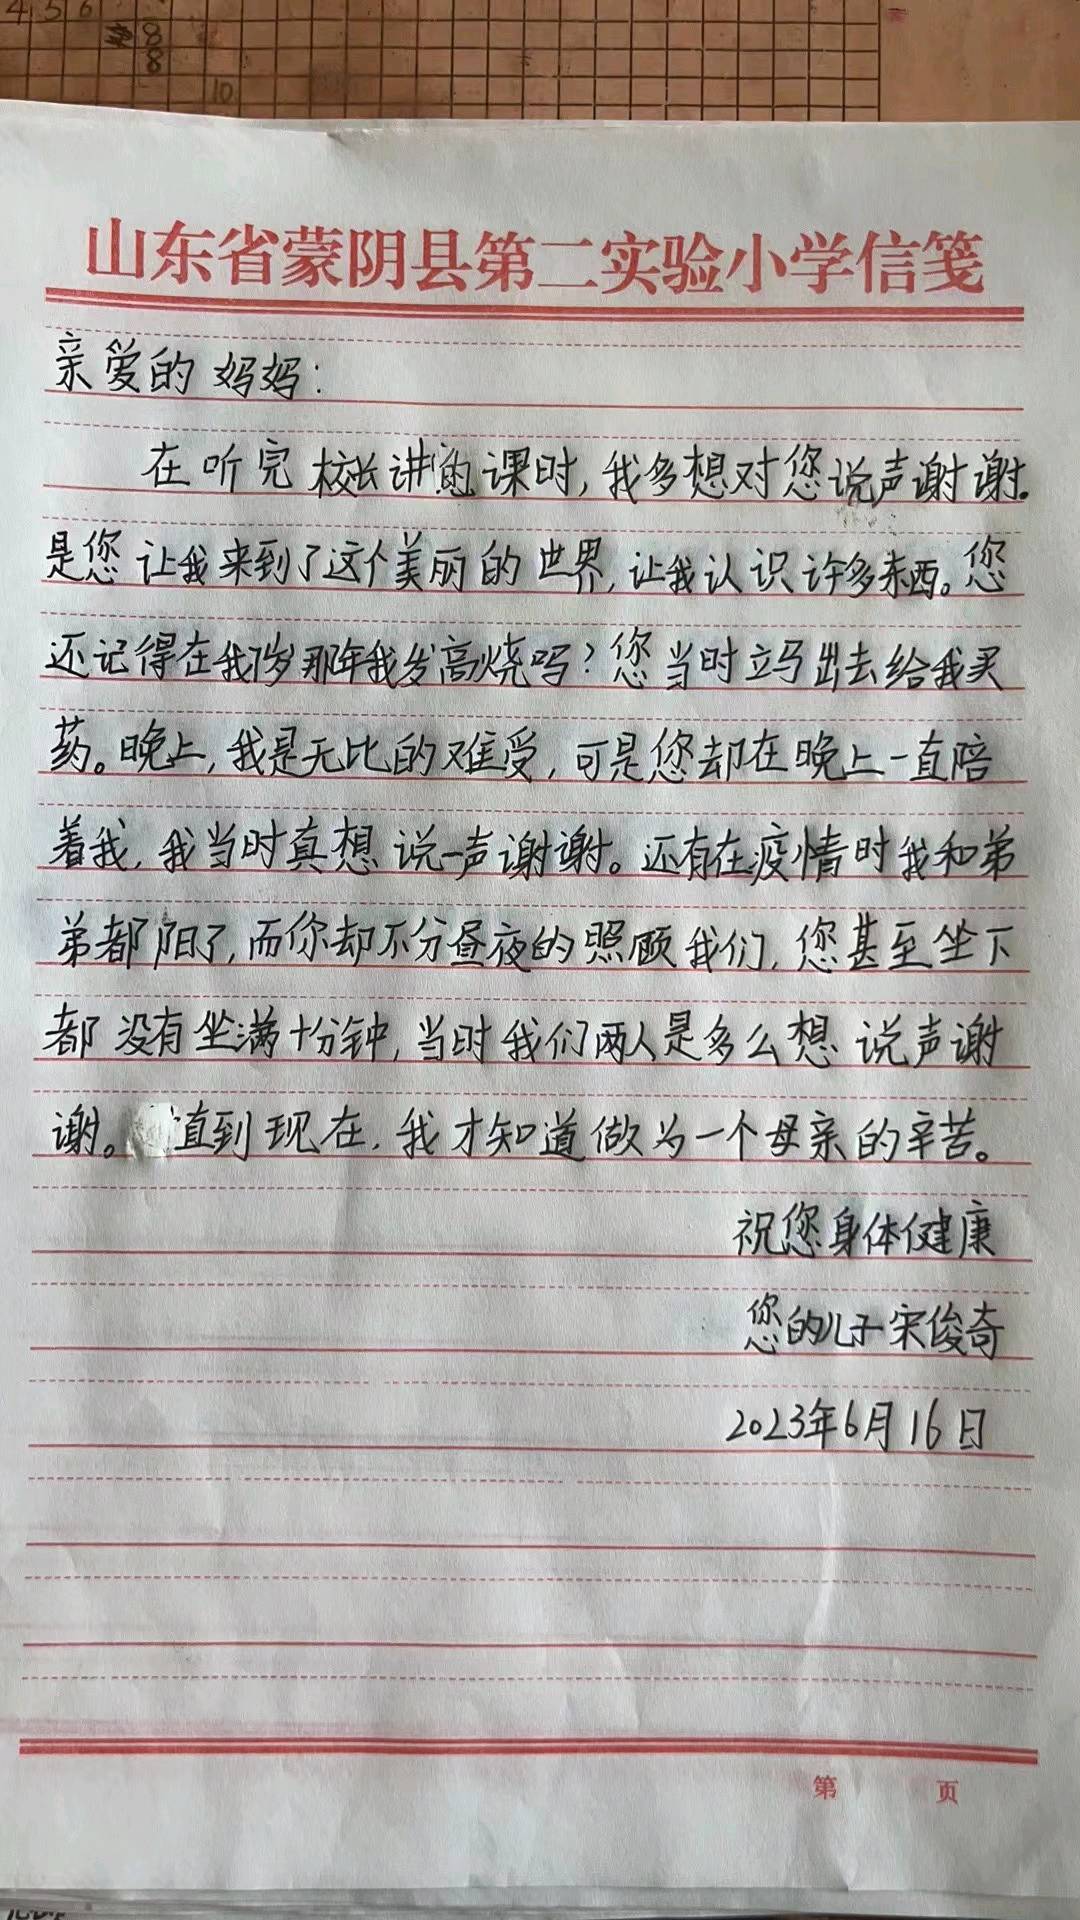 4 5 6
8
8
10
山东省蒙阴县第二实验小学信笺
亲爱的妈妈：
在听完校长讲的课时，我多想对您说声谢谢。
是您让我来到了这个美丽的世界，让我认识许多东西。您
还记得在我7岁那年我发高烧吗？您当时立马出去给我买
药。晚上，我是无比的难受，可是您却在晚上一直陪
着我，我当时真想说一声谢谢。还有在疫情时我和弟
弟都阳了，而你却不分昼夜的照顾我们，您甚至坐下
都没有坐满十分钟，当时我们两人是多么想说声谢
谢。直到现在，我才知道做为一个母亲的辛苦。
祝您身体健康
您的儿子宋俊奇
2023年6月16日
第 页